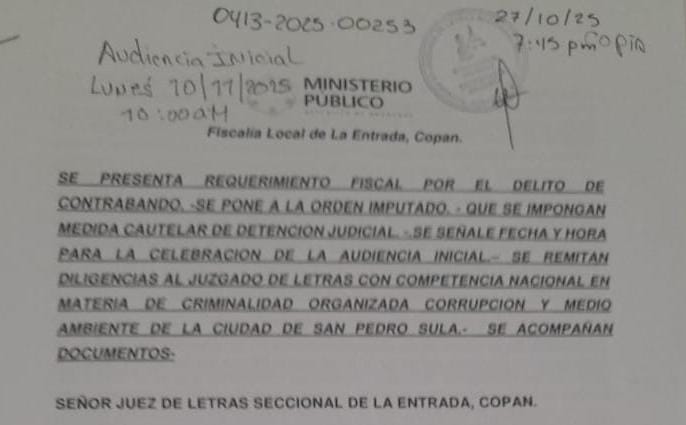 0413-2025-00253
27/10/25
7:45 pm Copia
Audiencia Inicial
Lunes 10/11/2025
10:00 AM
MINISTERIO
PUBLICO
Fiscalía Local de La Entrada, Copan.
SE PRESENTA REQUERIMIENTO FISCAL POR EL DELITO DE
CONTRABANDO. -SE PONE A LA ORDEN IMPUTADO. - QUE SE IMPONGAN
MEDIDA CAUTELAR DE DETENCION JUDICIAL. -.SE SEÑALE FECHA Y HORA
PARA LA CELEBRACION DE LA AUDIENCIA INICIAL.- SE REMITAN
DILIGENCIAS AL JUZGADO DE LETRAS CON COMPETENCIA NACIONAL EN
MATERIA DE CRIMINALIDAD ORGANIZADA CORRUPCION Y MEDIO
AMBIENTE DE LA CIUDAD DE SAN PEDRO SULA.- SE ACOMPAÑAN
DOCUMENTOS-
SEÑOR JUEZ DE LETRAS SECCIONAL DE LA ENTRADA, COPAN.